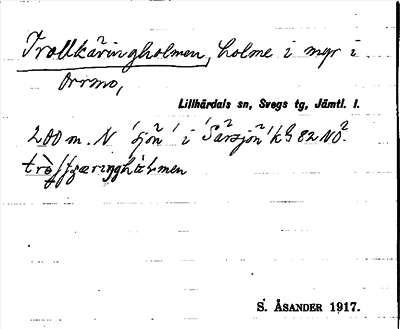 Trollkäringholmen, holme i myr i
Orrmo,
Lillhärdals sn, Svegs tg, Jämtl. l.
200 m. N 'sjön' i 'Särsjön' k G 82 NO.
S. ÅSANDER 1917.